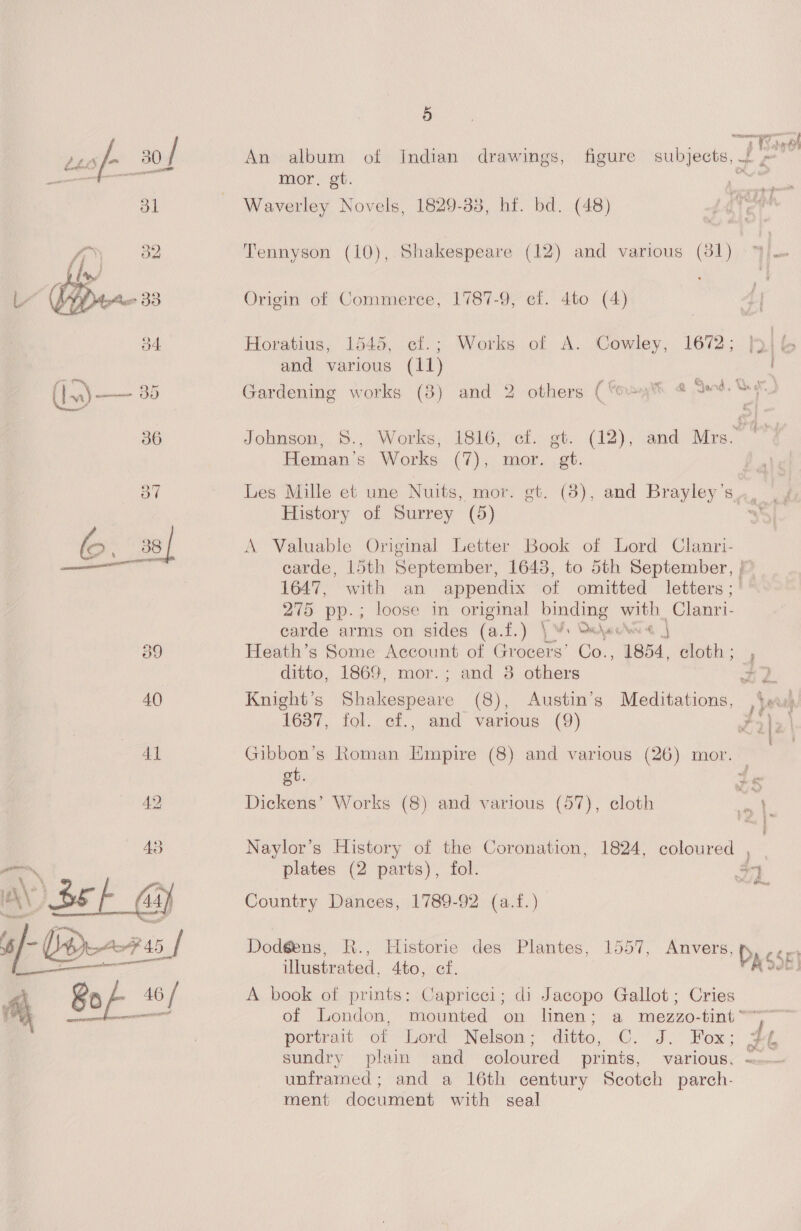 5
30/ An album of Indian drawings, figure subjects,
mor. gt.
31 Waverley Novels, 1829-33, hf. bd. (48)
32 Tennyson (10), Shakespeare (12) and various (31)
33 Origin of Commerce, 1787-9, cf. 4to (4)
34 Horatius, 1545, cf.; Works of A. Cowley, 1672;
and various (11)
35 Gardening works (3) and 2 others
36 Johnson, S., Works, 1816, cf. gt. (12), and Mrs.
Heman's Works (7), mor. gt.
37 Les Mille et une Nuits, mor. gt. (3), and Brayley's
History of Surrey (5)
38/ A Valuable Original Letter Book of Lord Clanri-
carde, 15th September, 1643, to 5th September,
1647, with an appendix of omitted letters;
275 pp.; loose in original binding with Clanri-
carde arms on sides (a.f.)
39 Heath's Some Account of Grocers' Co., 1854, cloth;
ditto, 1869, mor.; and 3 others
40 Knight's Shakespeare (8), Austin's Meditations,
1637, fol. cf., and various (9)
41 Gibbon's Roman Empire (8) and various (26) mor.
gt.
42 Dickens' Works (8) and various (57), cloth
43 Naylor's History of the Coronation, 1824, coloured
plates (2 parts), fol.
44 Country Dances, 1789-92 (a.f.)
45/ Dodœens, R., Historie des Plantes, 1557, Anvers, PASSED
illustrated, 4to, cf.
80/- 46/ A book of prints: Capricci; di Jacopo Gallot; Cries
of London, mounted on linen; a mezzo-tint
portrait of Lord Nelson; ditto, C. J. Fox;
sundry plain and coloured prints, various,
unframed; and a 16th century Scotch parch-
ment document with seal